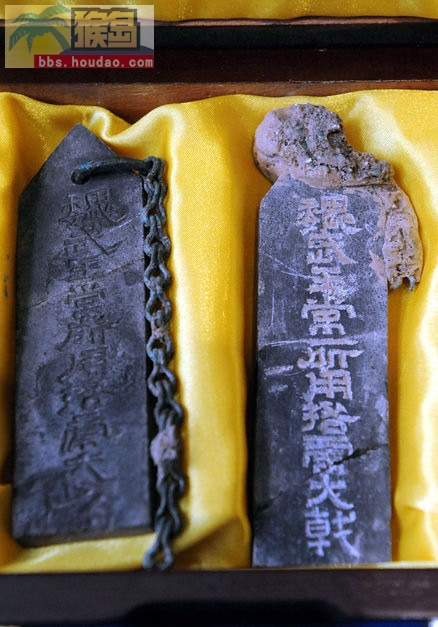 猴岛
bbs.houdao.com
魏武王常所用挌虎大
魏武王常所用挌虎大戟